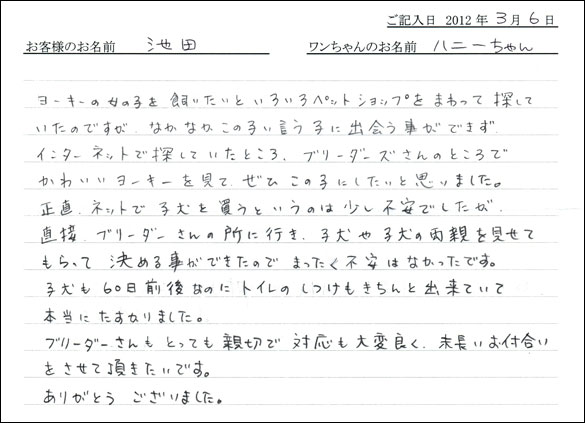 ご記入日 2012年3月6日
お客様のお名前 池田 ワンちゃんのお名前 ハニーちゃん
ヨーキーの女の子を飼いたいといろいろペットショップをまわって探して
いたのですが、なかなかこの子!!と言う子に出会う事ができず、
インターネットで探していたところ、ブリーダーズさんのところで
かわいいヨーキーを見て、ぜひこの子にしたいと思いました。
正直、ネットで子犬を買うというのは少し不安でしたが、
直接、ブリーダーさんの所に行き、子犬や子犬の両親を見せて
もらって決める事ができたのでまったく不安はなかったです。
子犬も60日前後なのにトイレのしつけもきちんと出来ていて
本当にたすかりました。
ブリーダーさんもとっても親切で対応も大変良く、末長いお付合い
をさせて頂きたいです。
ありがとうございました。